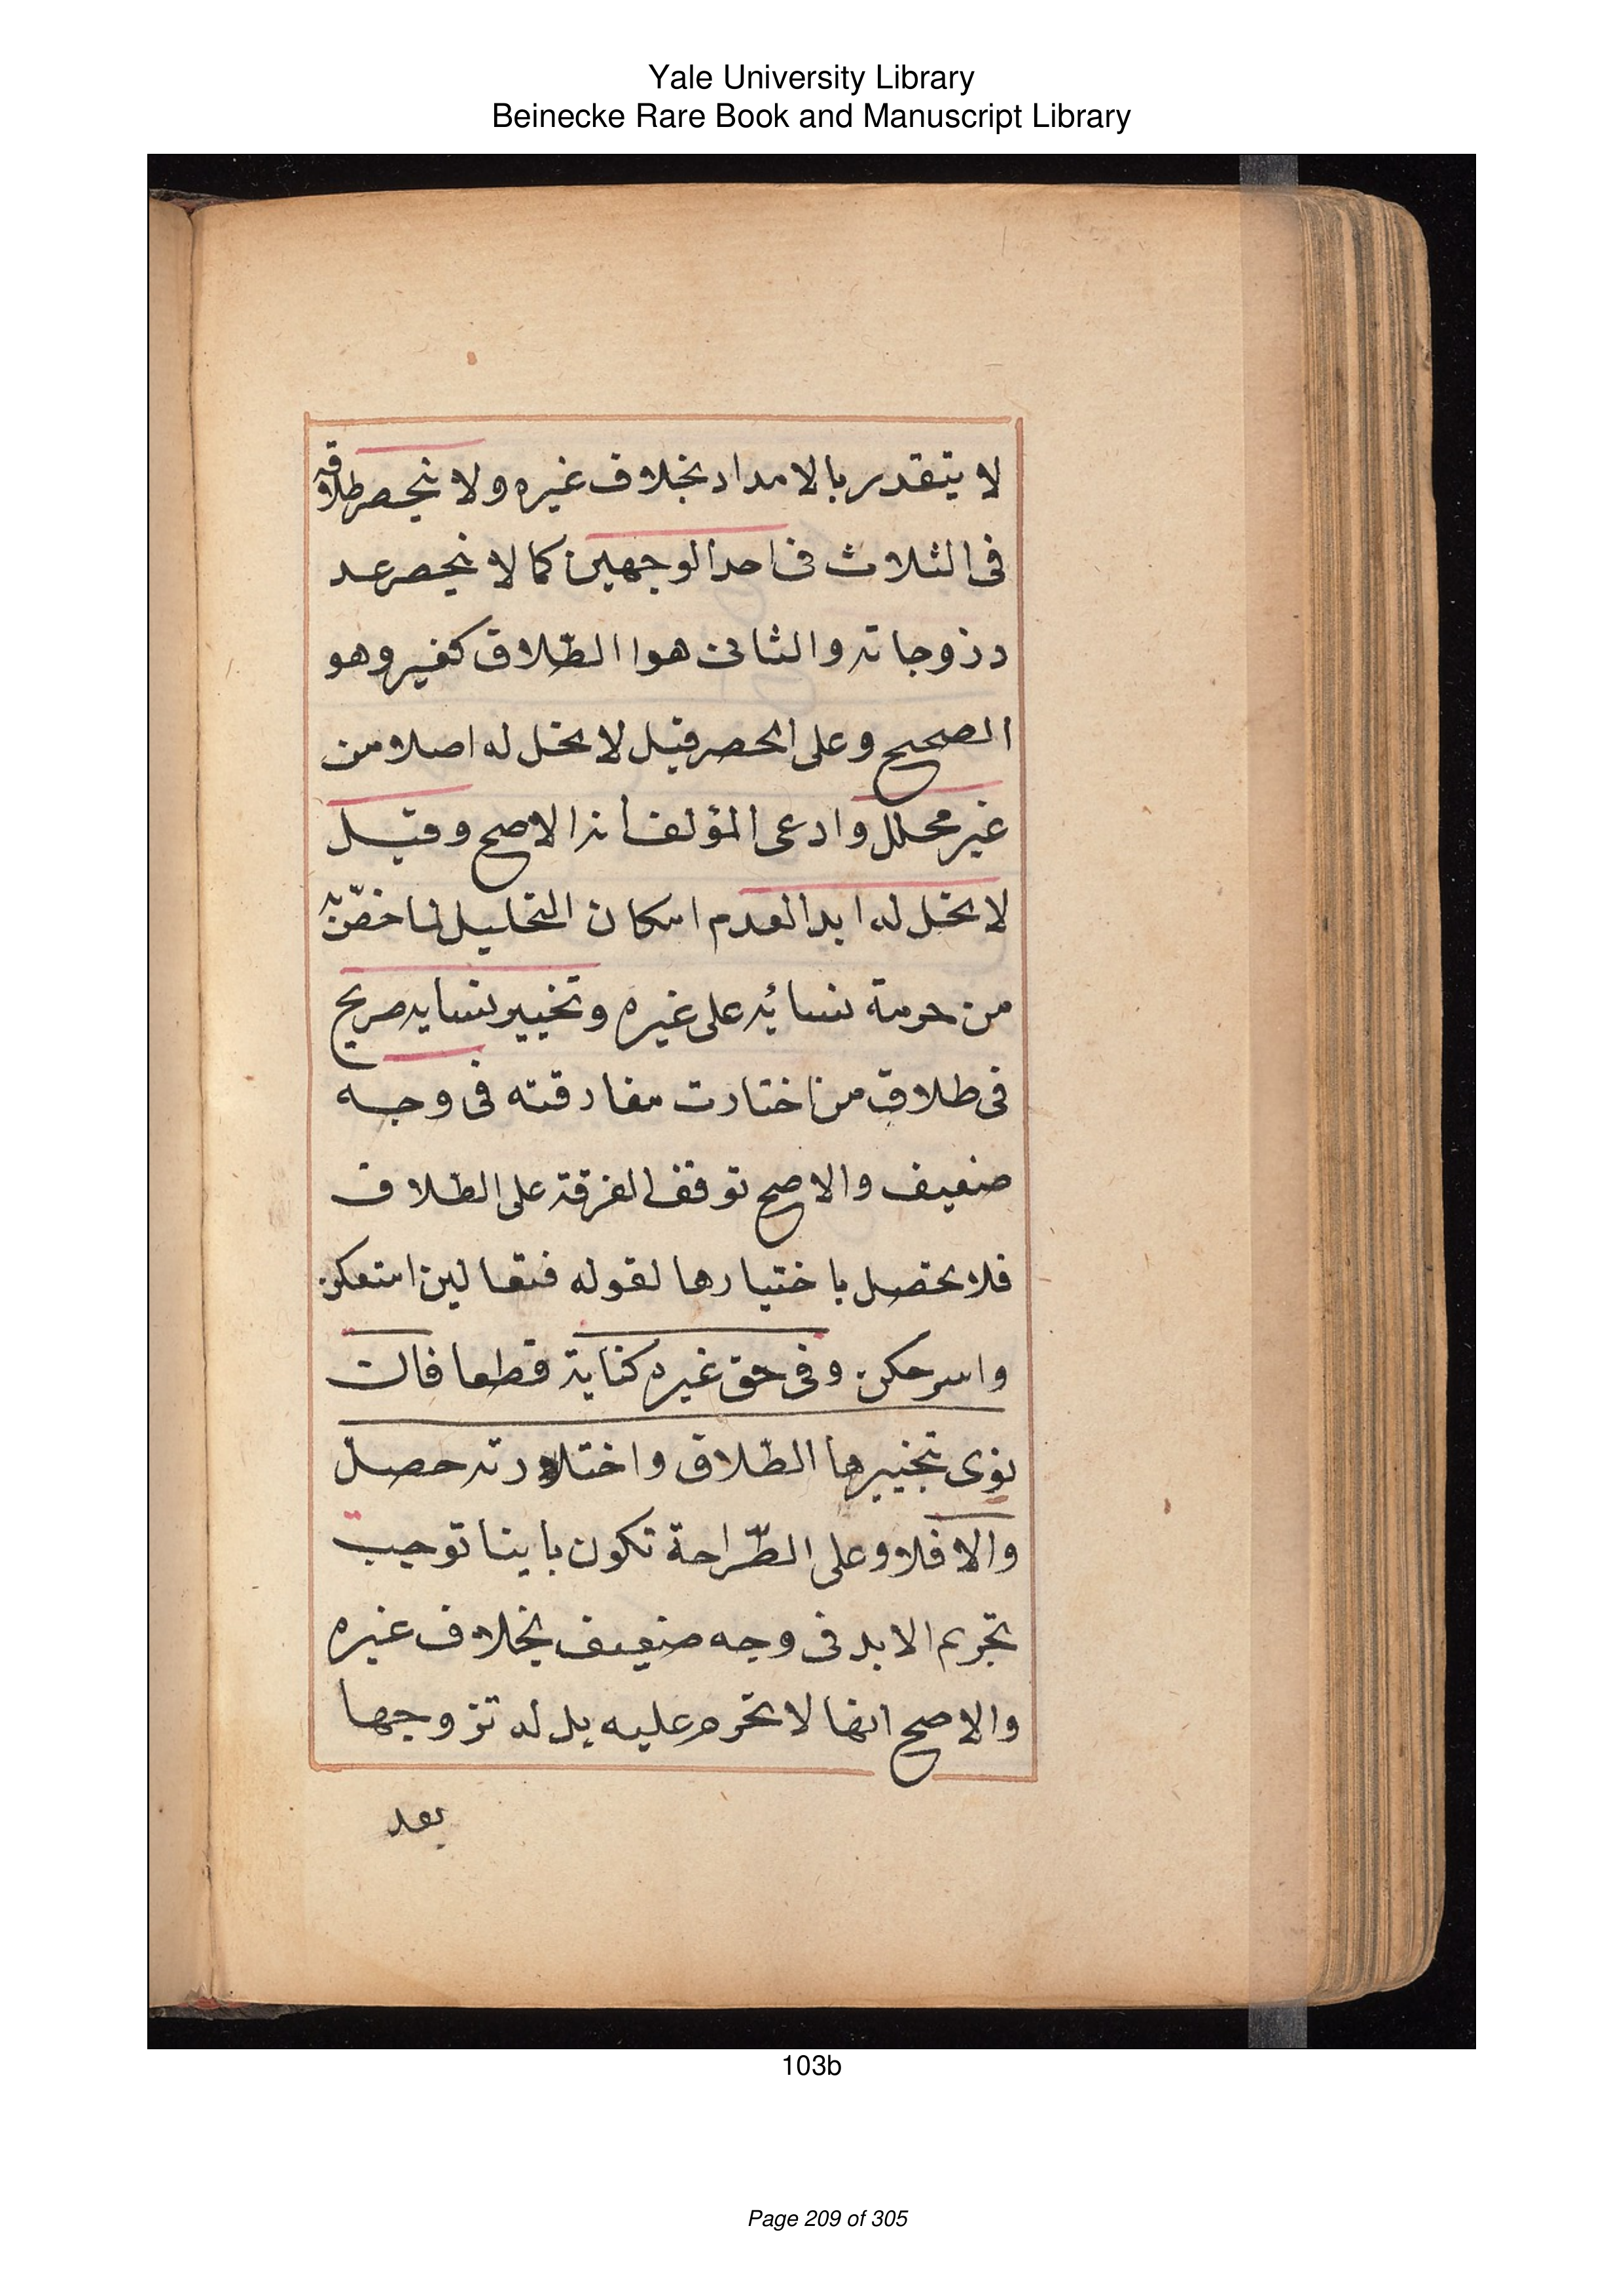 Yale University Library
Beinecke Rare Book and Manuscript Library
لا يتقدر بالامداد بخلاف غيره ولا ينحصر طلاقه
فى الثلاث فى احد الوجهين كما لا ينحصر عد
د زوجاته والثانى هوا الطّلاق كغيره وهو
الصحيح وعلى الحصر قيل لا تحل له اصلا من
غير محلل وادعى المؤلف انه الاصح وقيل
لا تحل له ابدا لعدم امكان التحليل لما خصّ به
من حرمة نسائه على غيره وتخيير نسايه صريح
فى طلاق من اختارت مفارقته فى وجه
ضعيف والاصح توقف الفرقة على الطلاق
فلا تحصل باختيارها لقوله فتعالين امتعكن
واسرحكن وفى حق غيره كناية قطعا فان
نوى بتخييرها الطّلاق واختارته حصل
والا فلا وعلى الصّراحة تكون باينا توجب
تحريم الابد فى وجه ضعيف بخلاف غيره
والاصح انها لا تحرم عليه بل له تزوجها
بعد
103b
Page 209 of 305